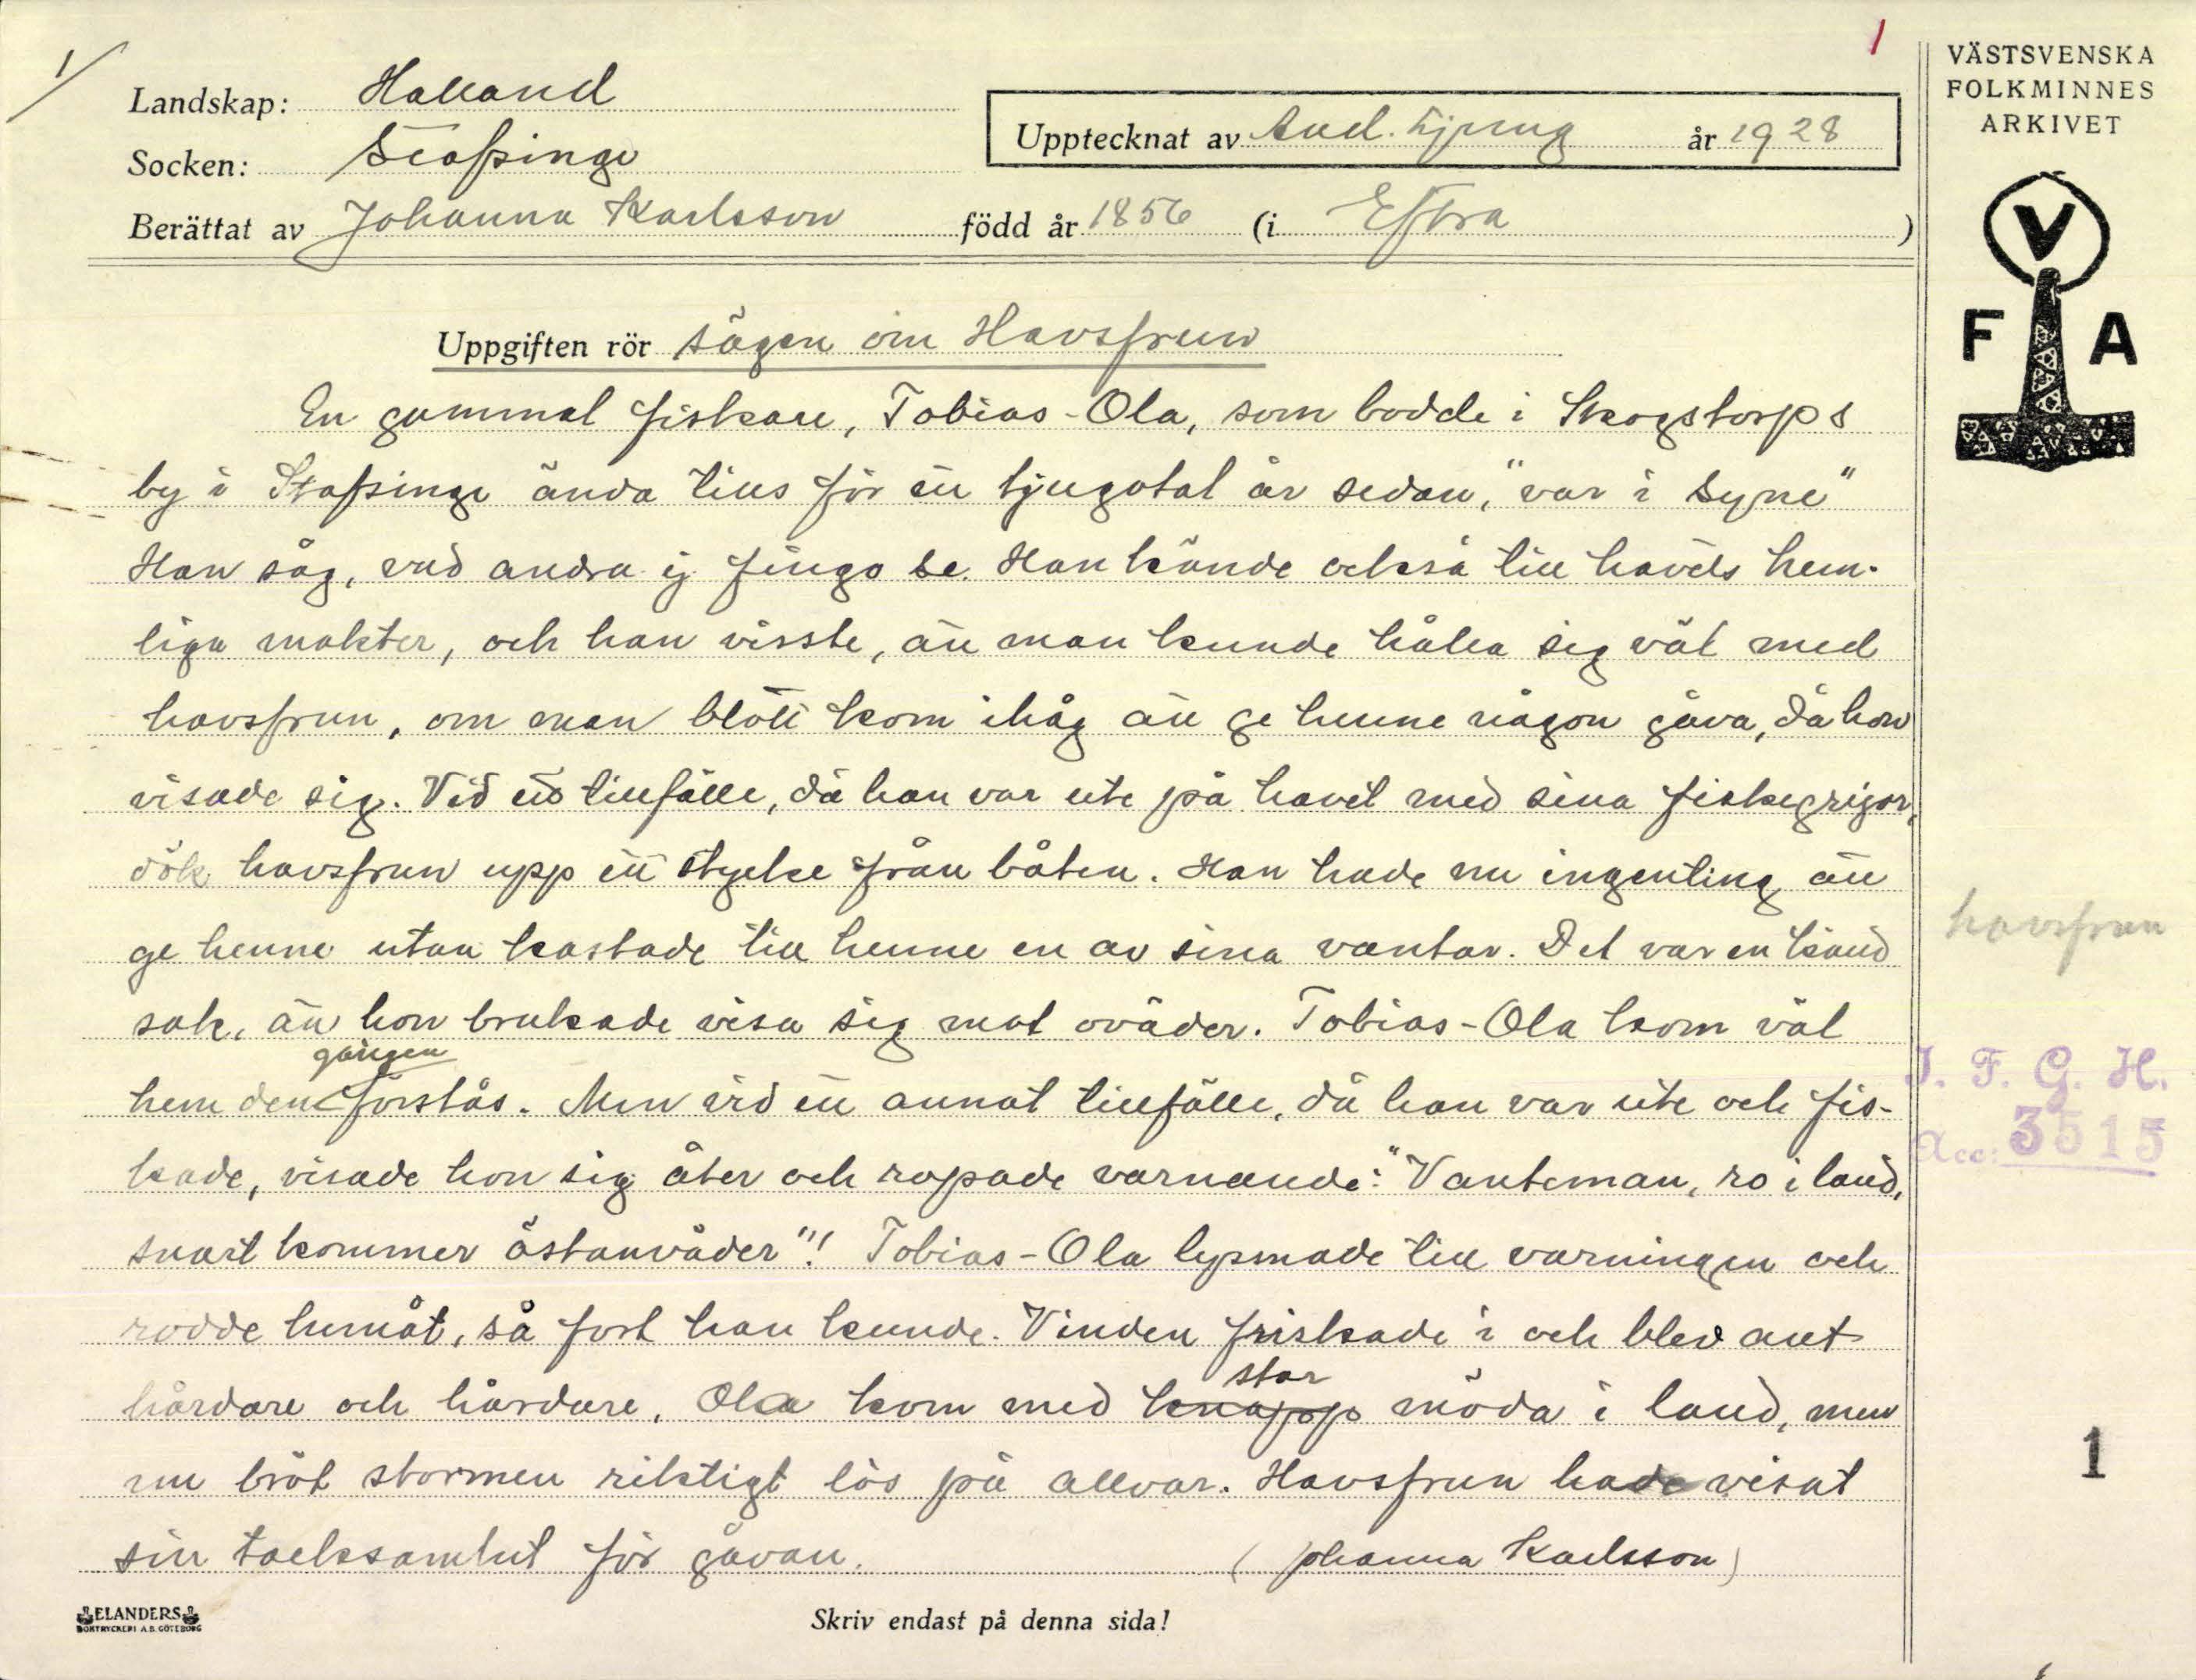 1/
1
Landskap: Halland
Socken: Stafsinge
Berättat av Johanna Karlsson född år 1856 (i Eftra)
Upptecknat av And. Ljung år 1928
VÄSTSVENSKA
FOLKMINNES
ARKIVET
V
F A
Uppgiften rör sägen om Havsfrun
En gammal fiskare, Tobias-Ola, som bodde i Skogstorps
by i Stafsinge ända tills för ett tjugotal år sedan, "var i syne"
Han såg, vad andra ej fingo se. Han kände också till havets hem-
liga makter, och han visste, att man kunde hålla sig väl med
havsfrun, om man blott kom ihåg att ge henne någon gåva, då hon
visade sig. Vid ett tillfälle, då han var ute på havet med sina fiskegrejor,
dök havsfrun upp ett stycke från båten. Han hade nu ingenting att
ge henne utan kastade till henne en av sina vantar. Det var en känd
sak, att hon brukade visa sig mot oväder. Tobias-Ola kom väl
hem den gången förstås. Men vid ett annat tillfälle, då han var ute och fis-
kade, visade hon sig åter och ropade varnande: "Vanteman, ro i land,
snart kommer östanväder"! Tobias-Ola lyssnade till varningen och
rodde hemåt, så fort han kunde. Vinden friskade i och blev allt
hårdare och hårdare. Ola kom med knapp stor möda i land, men
nu bröt stormen riktigt lös på allvar. Havsfrun hade visat
sin tacksamhet för gåvan. (Johanna Karlsson)
havsfrun
I. F. G. H.
Acc: 3515
1
ELANDERS
BOKTRYCKERI A.B. GÖTEBORG
Skriv endast på denna sida!